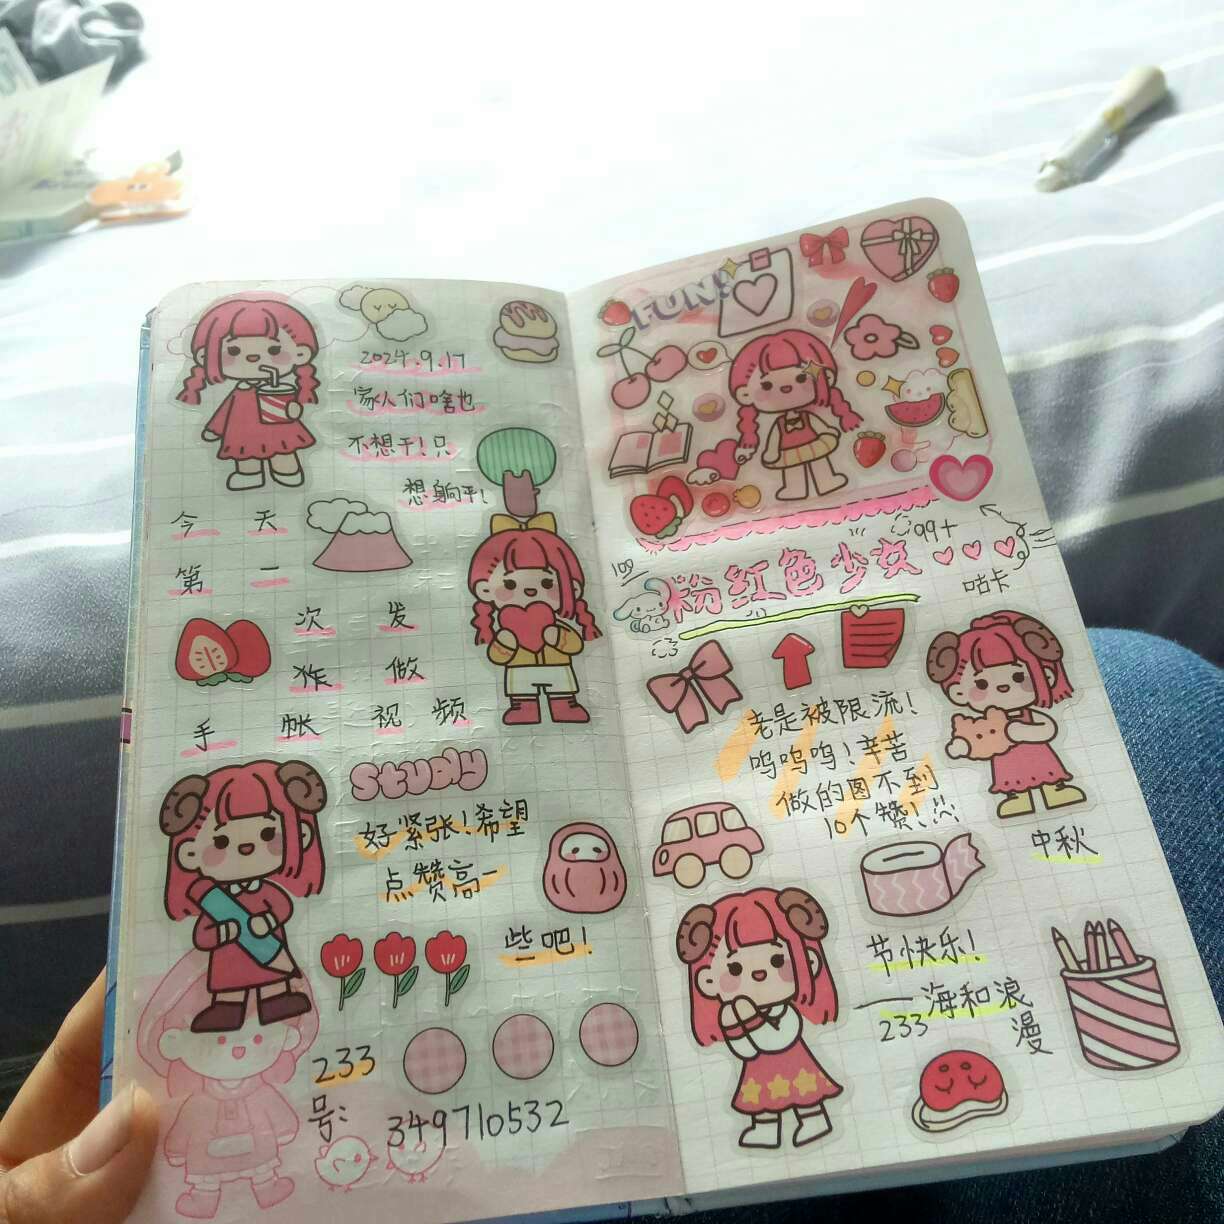 2024.9.17
家人们啥也
不想干！只
想躺平！
今 天
第 一
次 发
做
手 帐 视 频
study
好紧张！希望
点赞高一
些吧！
233
号：349710532
FUN!
99+
100
粉红色少女
咕卡
老是被限流！
呜呜呜！辛苦
做的图不到
10个赞！
中秋
节快乐！
——海和浪
233 漫